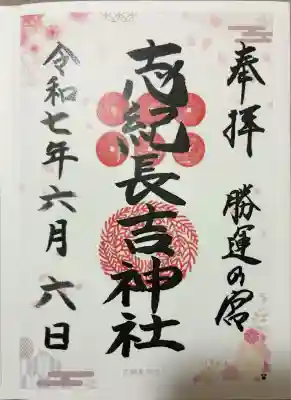 奉拝 勝運の宮
志紀長吉神社
令和七年六月六日